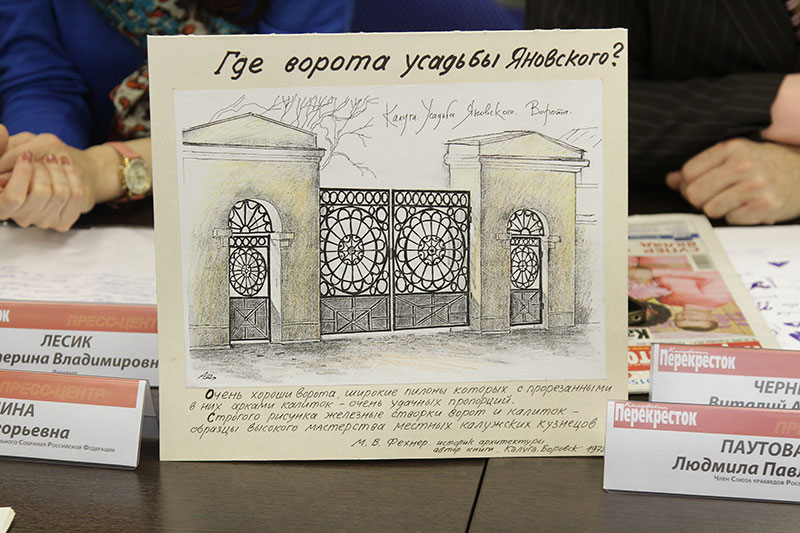 Где ворота усадьбы Яновского?
Калуга. Усадьба Яновского. Ворота.
Очень хороши ворота, широкие пилоны которых с прорезанными
в них арками калиток – очень удачных пропорций.
Строгого рисунка железные створки ворот и калиток –
образцы высокого мастерства местных калужских кузнецов.
М. В. Фехнер, историк архитектуры
автор книги „Калуга. Боровск" 197
ПРЕСС-ЦЕНТР
ЛЕСИК
Владимировн
ПРЕСС-ЦЕНТР
ИНА
орьевна
льного Собрания Российской Федерации
СУПЕР
ВКЛАД
Перекрёсток
ЧЕРН
Виталий А
Перекрёсток
ПР
ПАУТОВА
Людмила Павл
Член Союза краеведов Рос